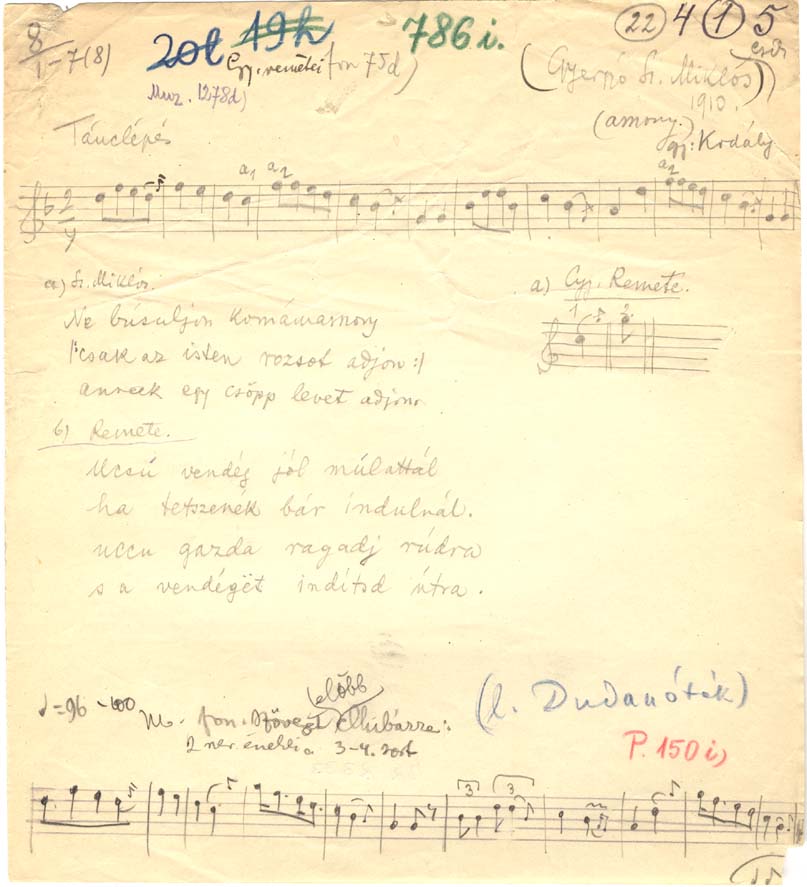 8
1-7(8)
20t 19h 786i. 22 4 1 5
Gy. remetei fon 75d)
Muz. 1278d)
csík
(Gyergyó Sz. Miklós)
1910.
(asszony.)
gy: Kodály
Tánclépés
a1 a2 a2
2
4
a) Sz. Miklós.
Ne búsuljon komámasszony
/: csak az isten rozsot adjon :/
annak egy csöpp levet adjon
a) Gy. Remete.
1 2.
b) Remete.
Ucsú vendég jól múlattál
ha tetszenék bár indulnál.
uccu gazda ragadj rúdra
s a vendégët indítsd útra.
♩=96 -100
M. fon. szöveget előbb elhibázza:
2 ner. énekli a 3-4. sort
(l. Dudanóták)
P. 150i)
3 3